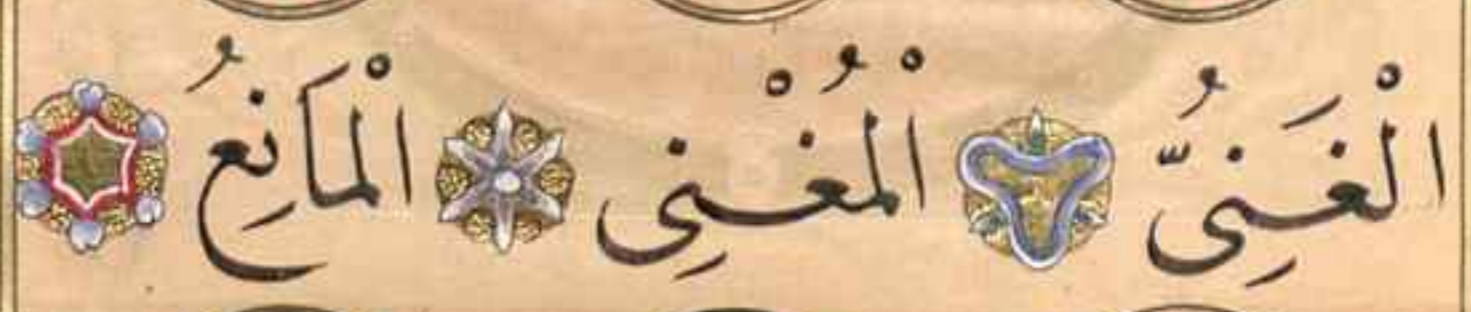 الْغَنِىُّ الْمُغْنِى الْمَانِعُ